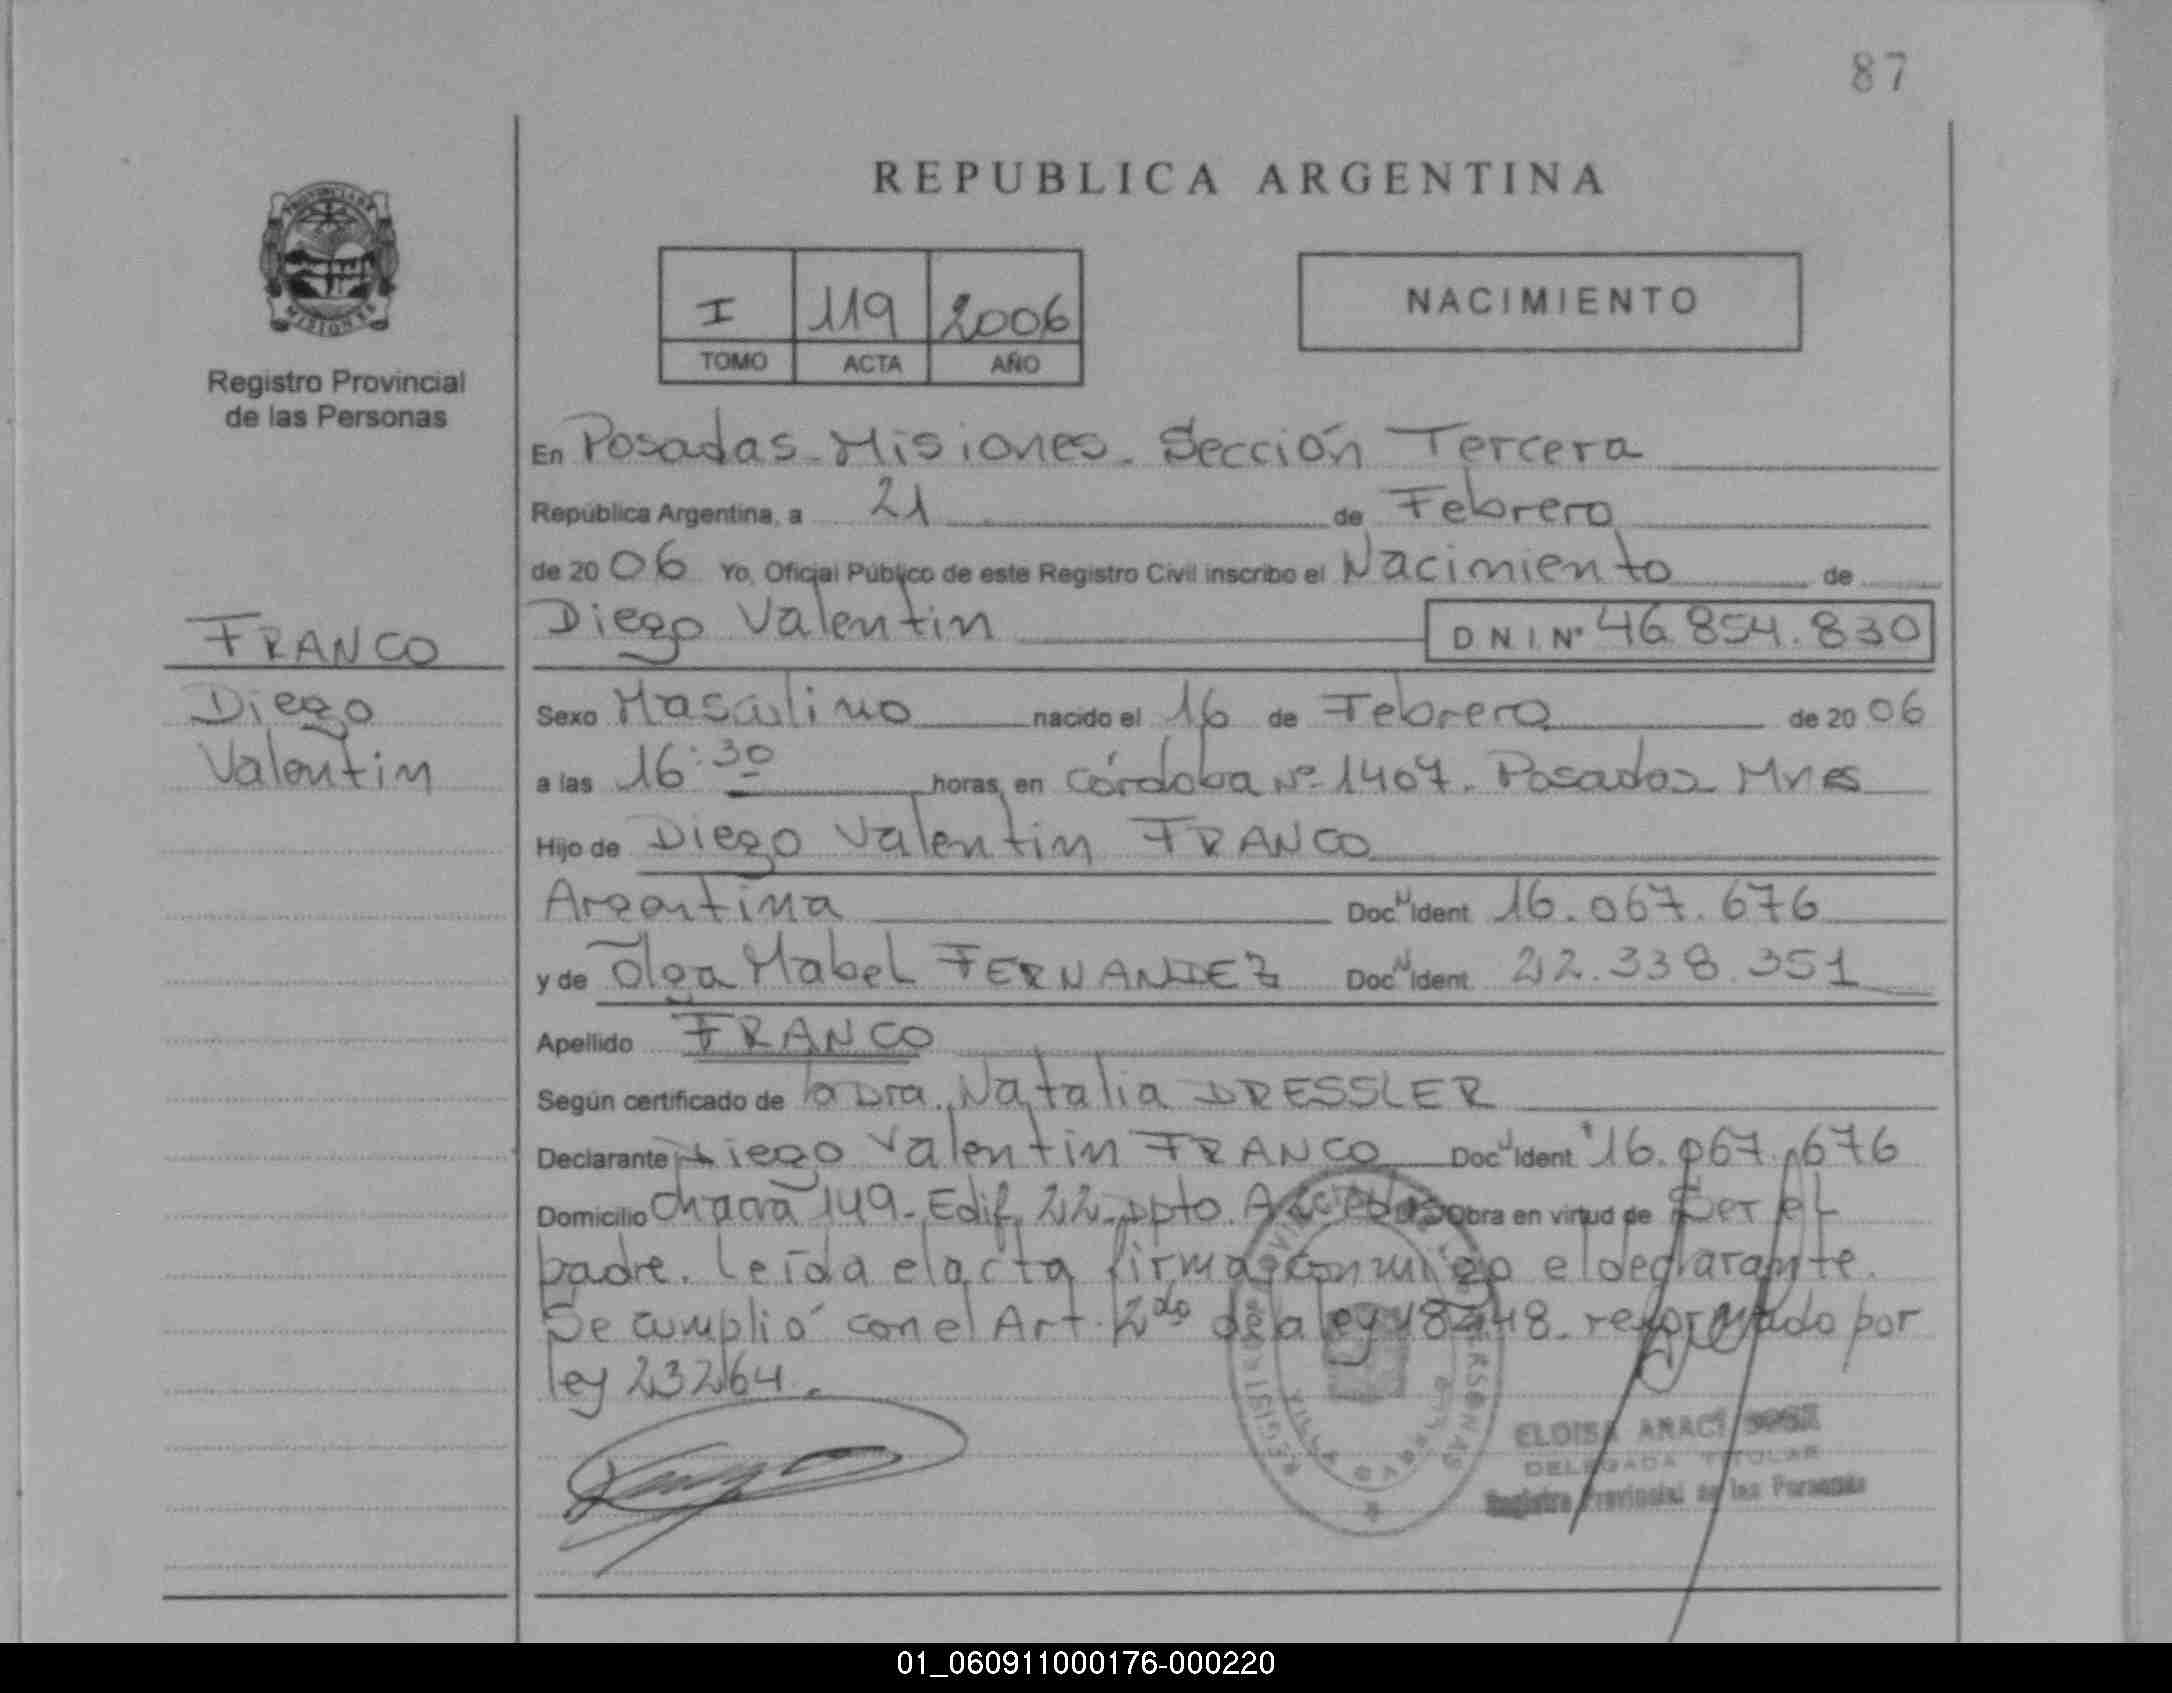 87
PROVINCIA DE
MISIONES
Registro Provincial
de las Personas
REPUBLICA ARGENTINA
I 119 2006
TOMO ACTA AÑO
NACIMIENTO
En Posadas - Misiones - Sección Tercera
República Argentina, a 21 de Febrero
de 2006 Yo, Oficial Público de este Registro Civil inscribo el Nacimiento de
Diego Valentin D N I. Nº 46.854.830
FRANCO
Diego
Valentin
Sexo Masculino nacido el 16 de Febrero de 2006
a las 16:30 horas, en Córdoba Nº 1407. Posadas Mnes
Hijo de Diego Valentin FRANCO
Argentina Doc Ident 16.067.676
y de Olga Mabel FERNANDEZ Doc Ident 22.338.351
Apellido FRANCO
Según certificado de la Dra. Natalia DRESSLER
Declarante Diego Valentin FRANCO Doc Ident 16.067.676
Domicilio Chacra 149 - Edif. 22 - Dpto. A Obra en virtud de Ser el
padre. Leída el acta firma conmigo el declarante.
Se cumplió con el Art. 2do de la ley 18248. reformado por
ley 23264.
REGISTRO PROVINCIAL DE LAS PERSONAS
VILLA
ELOISA ARACI
DELEGADA TITULAR
Registro Provincial de las Personas
01_060911000176-000220